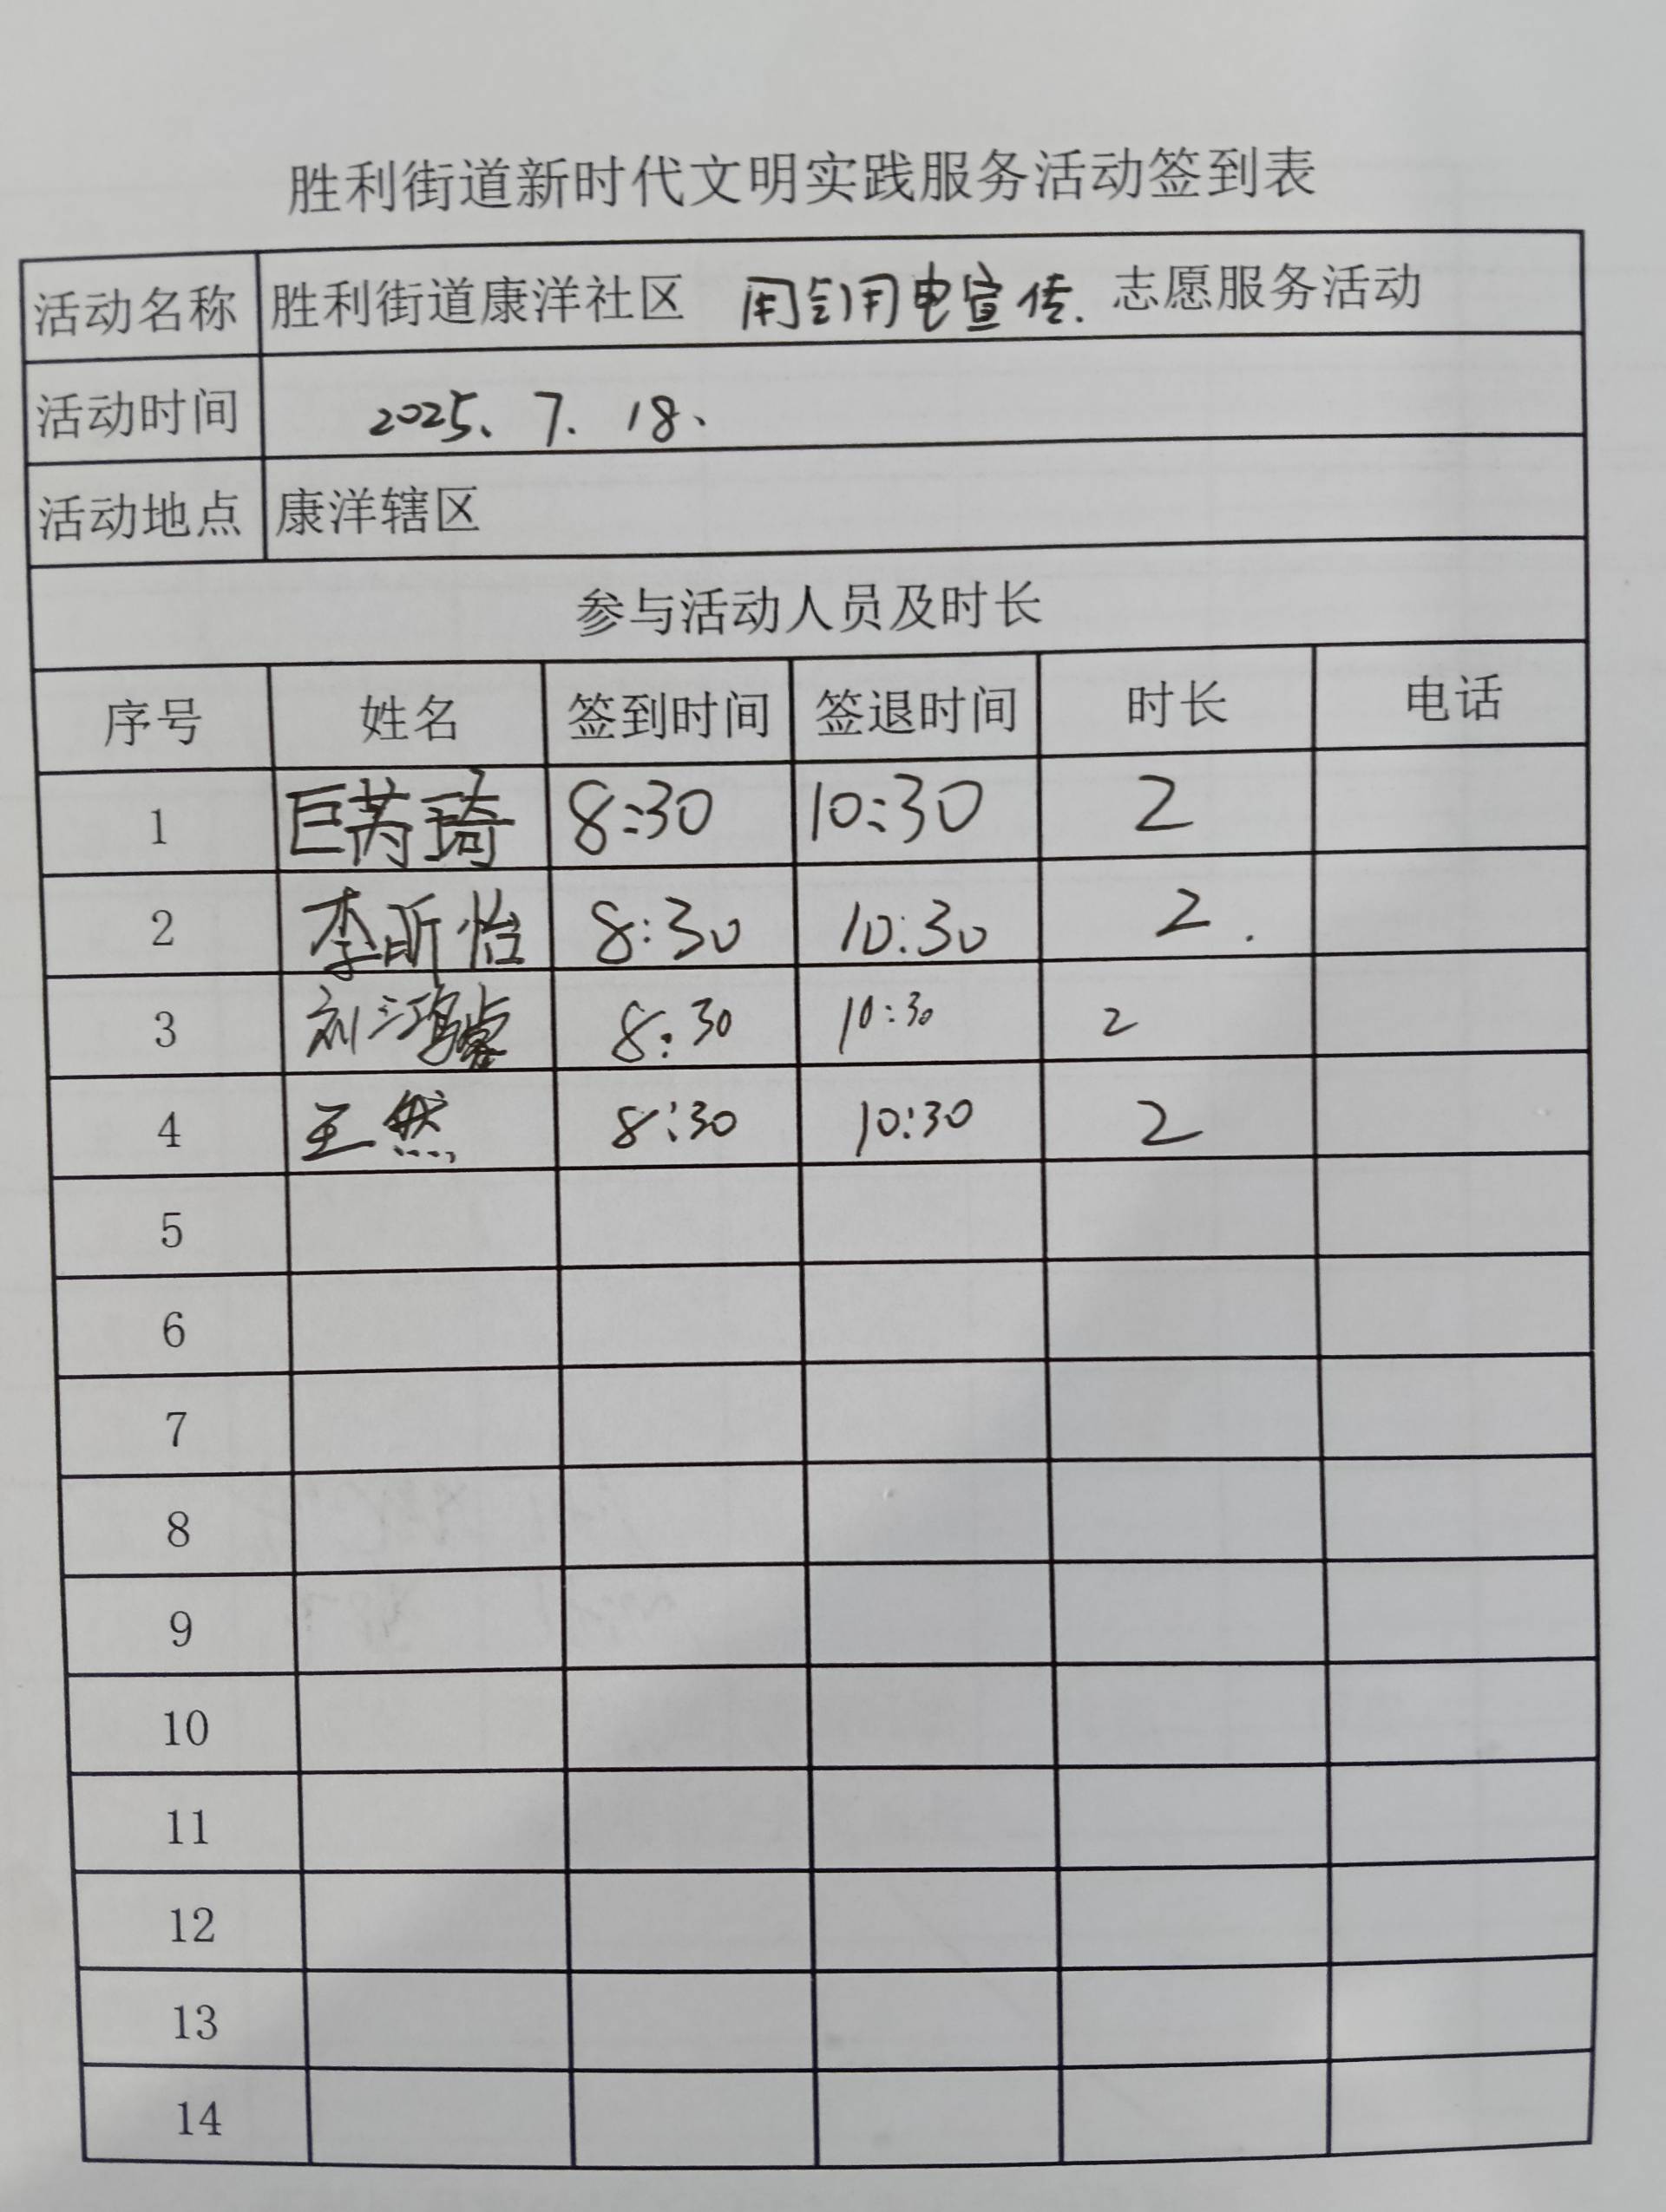 胜利街道新时代文明实践服务活动签到表
活动名称 胜利街道康洋社区 用气用电宣传. 志愿服务活动
活动时间 2025、7. 18、
活动地点 康洋辖区
参与活动人员及时长
序号 姓名 签到时间 签退时间 时长 电话
1 巨芮琦 8:30 10:30 2
2 李昕怡 8:30 10:30 2.
3 刘鸿睿 8:30 10:30 2
4 王然 8:30 10:30 2
5
6
7
8
9
10
11
12
13
14